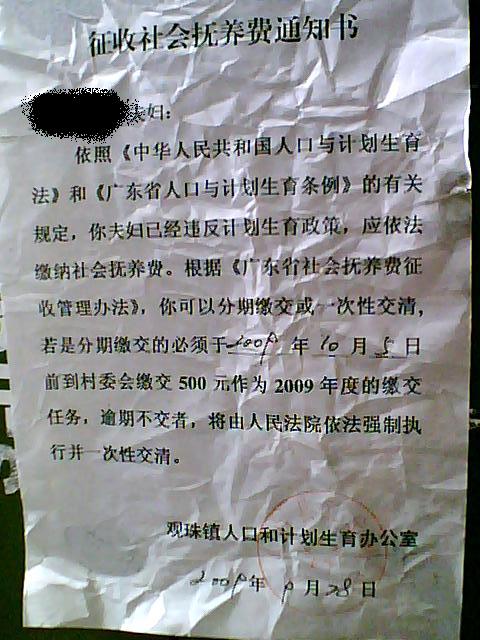 征收社会抚养费通知书
夫妇：
依照《中华人民共和国人口与计划生育
法》和《广东省人口与计划生育条例》的有关
规定，你夫妇已经违反计划生育政策，应依法
缴纳社会抚养费。根据《广东省社会抚养费征
收管理办法》，你可以分期缴交或一次性交清，
若是分期缴交的必须于2009年10月5日
前到村委会缴交500元作为2009年度的缴交
任务，逾期不交者，将由人民法院依法强制执
行并一次性交清。
观珠镇人口和计划生育办公室
2009年9月28日